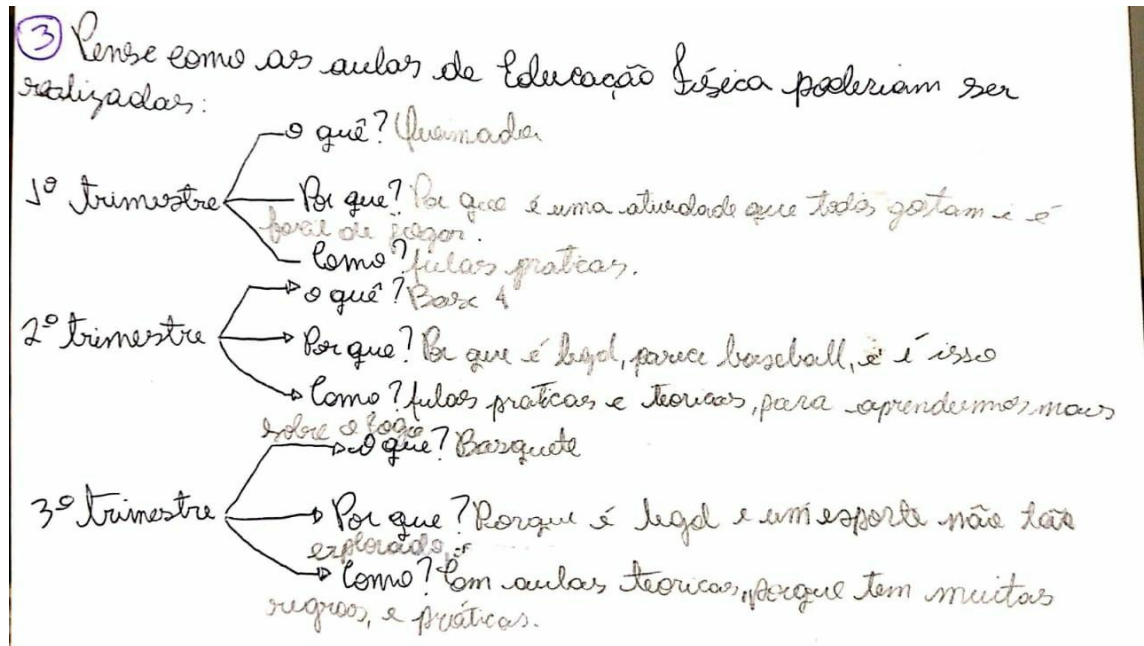 3 Pense como as aulas de Educação Física poderiam ser
realizadas:
O quê? Queimada
1º trimestre Por que? Por que é uma atividade que todos gostam e é
facil de jogar.
Como? Aulas praticas.
O quê? Base 4
2º trimestre Por que? Por que é legal, parece baseball, e é isso
Como? Aulas praticas e teoricas, para aprendermos mais
sobre o jogo
O que? Basquete
3º trimestre Por que? Porque é legal e um esporte não tão
explorado
Como? Com aulas teoricas, porque tem muitas
regras, e práticas.